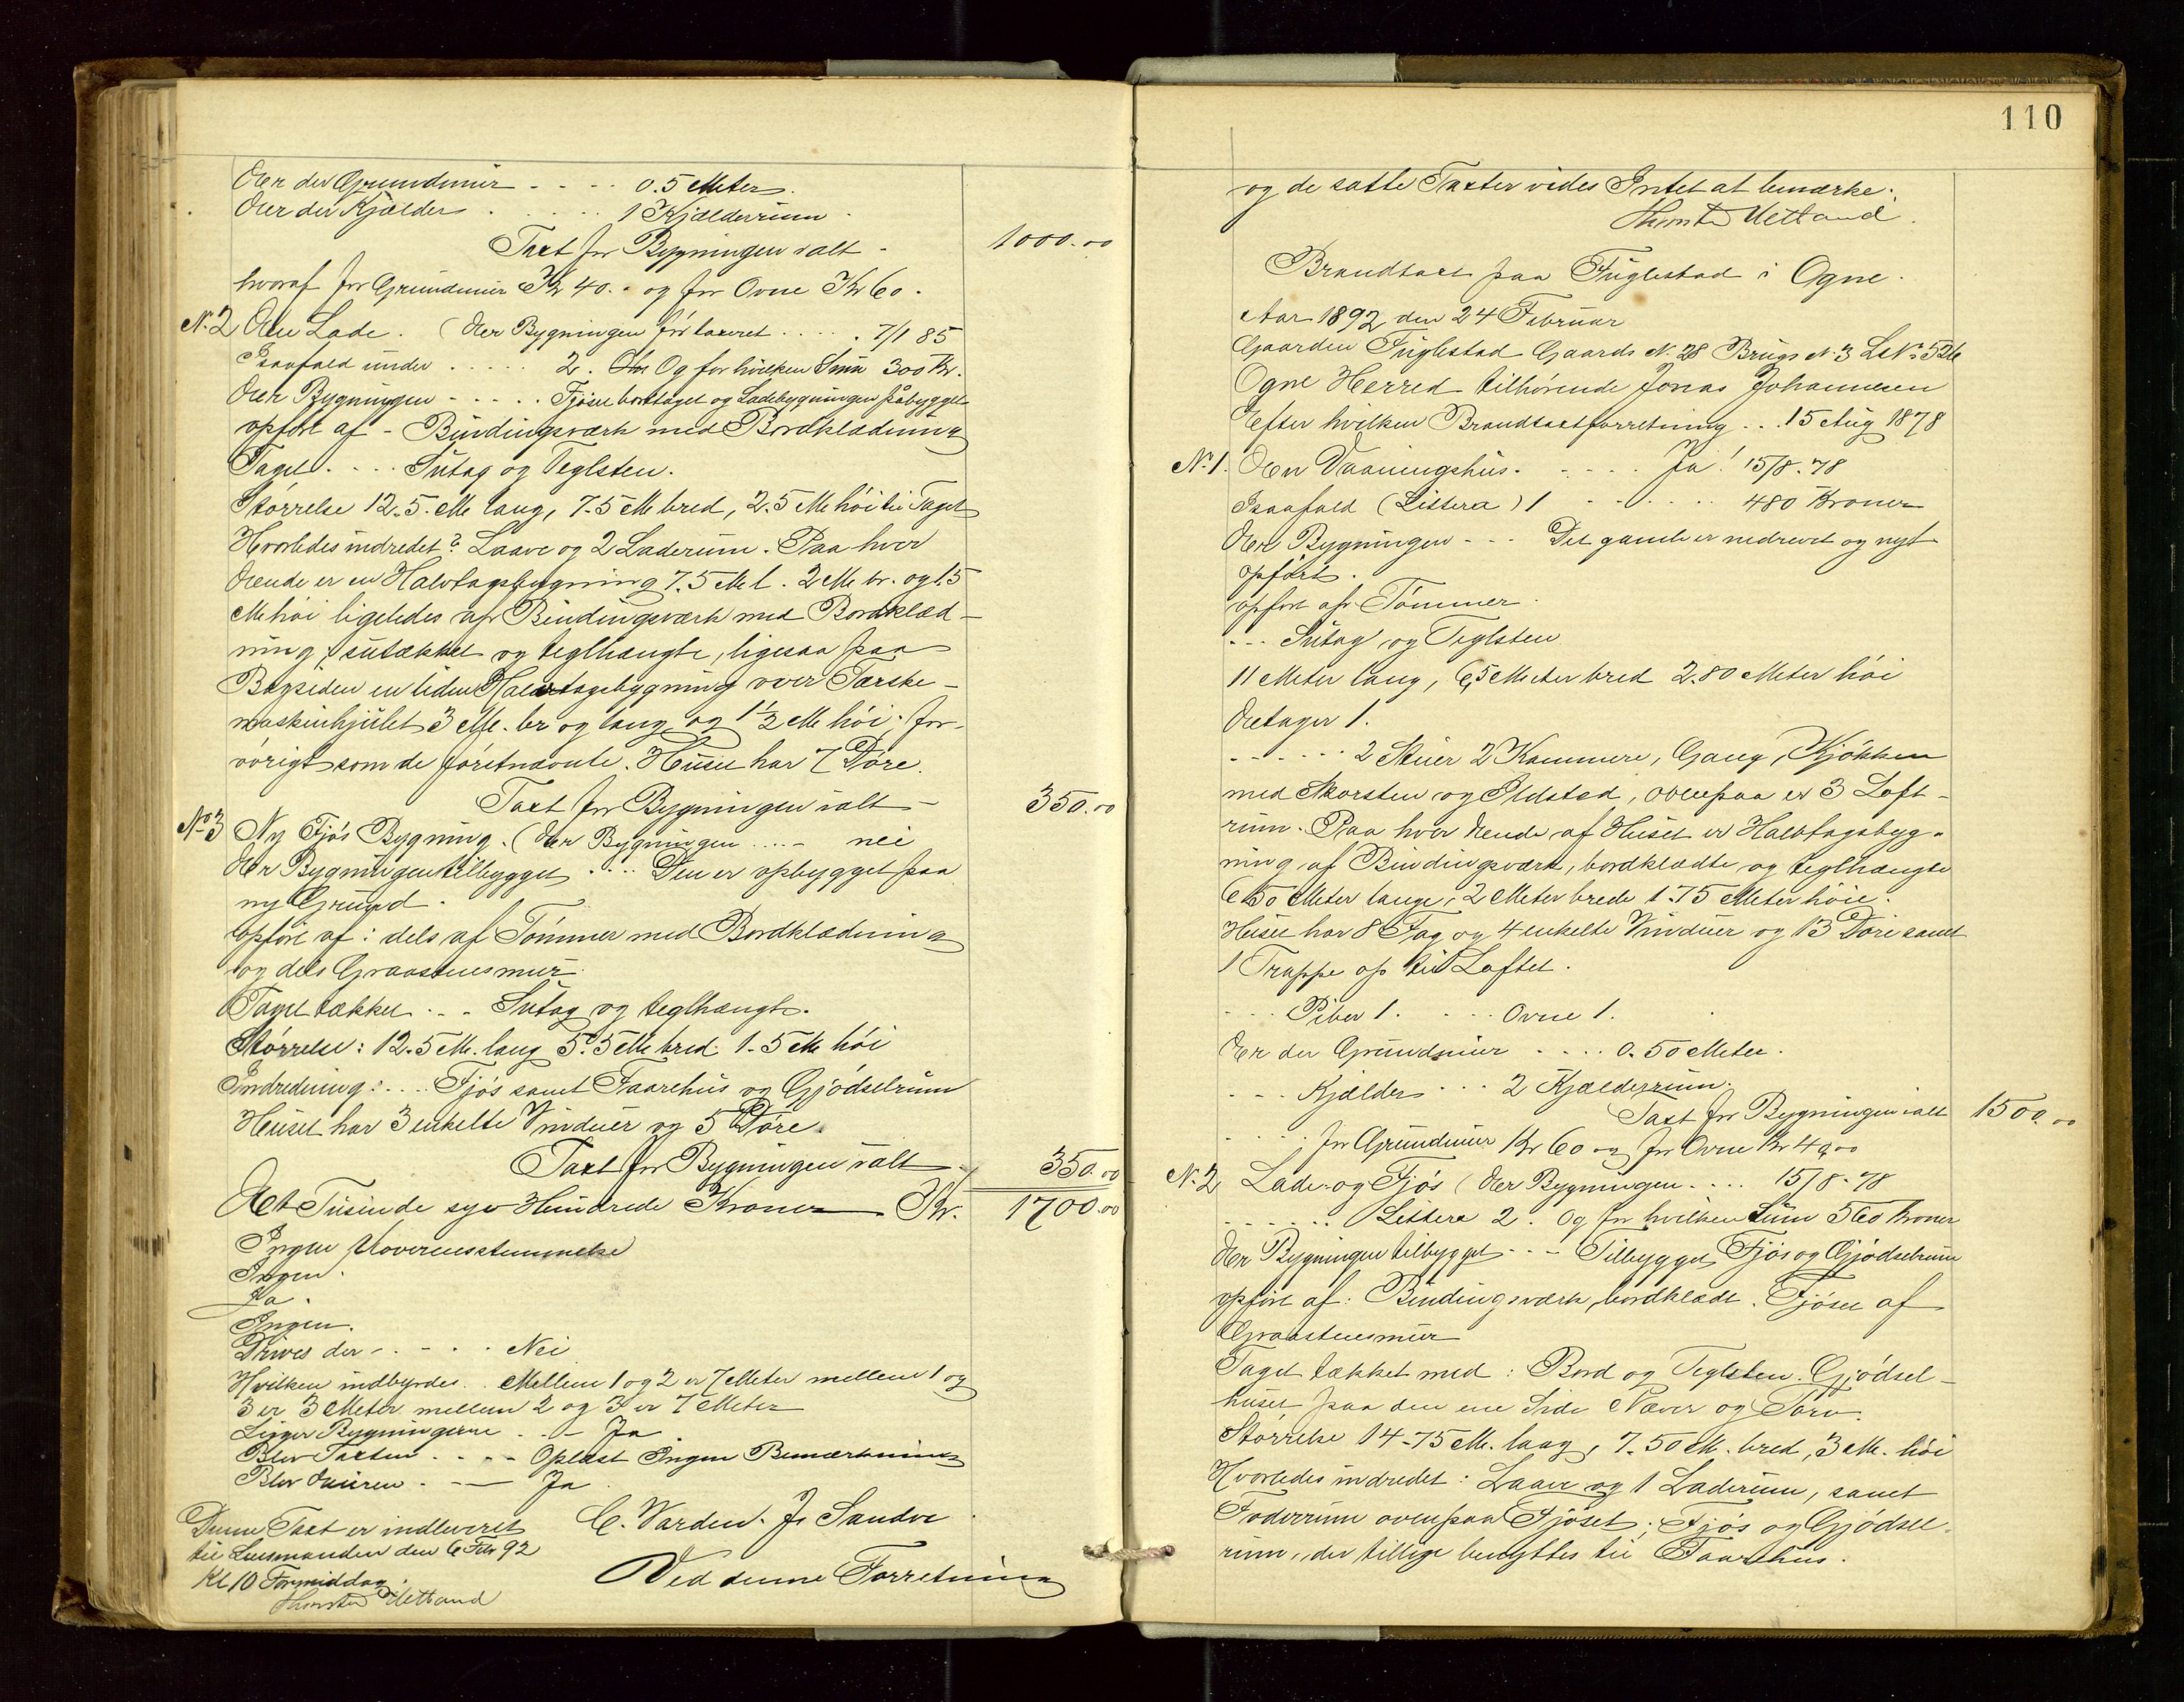 Er der Grundmur - - - - 0.5 Meter.
Er der Kjælder . . . . . 1 Kjælderrum.
Taxt for Bygningen ialt - 1000.00
hvoraf for Grundmur Kr 40. - og for Ovne Kr 60.
N. 2 Een Lade. (Er Bygningen før taxeret . . . . . 7/1 85
Isaafald under . . . . . 2. Og for hvilken Sum 300 Kr.
Er Bygningen - - - - . Fjøset borttaget og Ladebygningen påbygget
opført af - Bindingsværk med Bordklædning
Taget . . . . Sutag og Teglsten.
Størrelse 12.5. M lang, 7.5 M bred, 2.5 M høi til Taget
Hvorledes indredet? Laave og 2 Laderum. Paa hver
Ende er en Halvtagsbygning 7.5 M l. 2 M br. og 1.5
M høi ligeledes af Bindingsværk med Bordklæd-
ning, sutækket og teglhængte, ligesaa paa
Bagsiden en liden Halvtagsbygning over Tærske-
maskinhjulet 3 M. br og lang og 1 1/2 M høi. for-
vørigt som de føretnævnte. Huset har 7 Døre.
Taxt for Bygningen ialt - 350.00
No 3 Ny Fjøs Bygning. (Er Bygningen . . . . - nei
Er Bygningen tilbygget . . . . Den er opbygget paa
ny Grund.
opført af: dels af Tømmer med Bordklædning
og dels Graastensmur.
Taget tækket . . . Sutag og teglhængt.
Størrelse: 12.5 M. lang 5.5 M bred 1.5 M høi
Indredning: . . . . Fjøs samt Faarehus og Gjødselrum
Huset har 3 enkelte Vinduer og 5 Døre.
Taxt for Bygningen ialt - 350.00
Et Tusinde syv Hundrede Kroner - Kr. 1700.00
Ingen Uoverensstemmelse
Ingen.
Ja.
Ingen.
Drives der - . - . . Nei
Hvilken indbyrdes . . Mellem 1 og 2 er 7 Meter mellem 1 og
3 er 3 Meter mellem 2 og 3 er 7 Meter
Ligger Bygningerne . . - Ja
Blev Taxten . . . - Oplæst Ingen Bemærkning
Blev Eieren . - — Ja
Denne Taxt er indleveret C. Varden. J. Sandve
til Lensmanden den 6 Feb 92
Kl 10 Formiddag. Ved denne Forretning
Thorsten Uelland
110
og de satte Taxter vides Intet at bemærke.
Thorsten Uelland.
Brandtaxt paa Fuglestad i Ogne.
Aar 1892 den 24 Februar
Gaarden Fuglestad Gaards N. 28 Brugs N. 3 L. No 52b
Ogne Herred tilhørende Jonas Johannesen
Efter hvilken Brandtaxtforretning . . . 15 Aug 1878
N. 1. Een Vaaningshus. - . . . . Ja! 15/8.78
Isaafald (Littera) 1 - - - . . . 480 Kroner
Er Bygningen - - - Det gamle er nedrevet og nyt
opført.
opført af Tømmer.
. - - Sutag og Teglsten
11 Meter lang, 6,5 Meter bred 2.80 Meter høi
Etager 1.
- . . - - - 2 Stuer 2 Kammere, Gang, Kjøkken
med Skorsten og Ildsted, ovenpaa er 3 Loft-
rum. Paa hver Ende af Huset er Halvtagsbyg-
ning af Bindingsværk, bordklædte og teglhængte
6.50 Meter lange, 2 Meter brede 1.75 Meter høie.
Huset har 8 Fag og 4 enkelte Vinduer og 13 Døre samt
1 Trappe op til Loftet.
- - - Piber 1. . - . . Ovne 1.
Er der Grundmur - . . . 0.50 Meter.
- - - Kjælder . . . 2 Kjælderrum.
Taxt for Bygningen ialt 1500.00
- . . . for Grundmur Kr 60 og for Ovne Kr 40,00
N. 2 Lade og Fjøs (Er Bygningen - . . . 15/8.78
- - - - . . Littera 2. Og for hvilken Sum 560 Kroner
Er Bygningen tilbygget - - - Tilbygget Fjøs og Gjødselrum
opført af: Bindingsværk, bordklædt. Fjøset af
Graastensmur
Taget tækket med: Bord og Teglsten. Gjødsel-
huset paa den ene Side Næver og Torv.
Størrelse 14.75 M. lang, 7.50 M. bred, 3 M. høi
Hvorledes indredet: Laave og 1 Laderum, samt
Foderrum ovenpaa Fjøset; Fjøs og Gjødsel-
rum, der tillige benyttes til Faarehus.